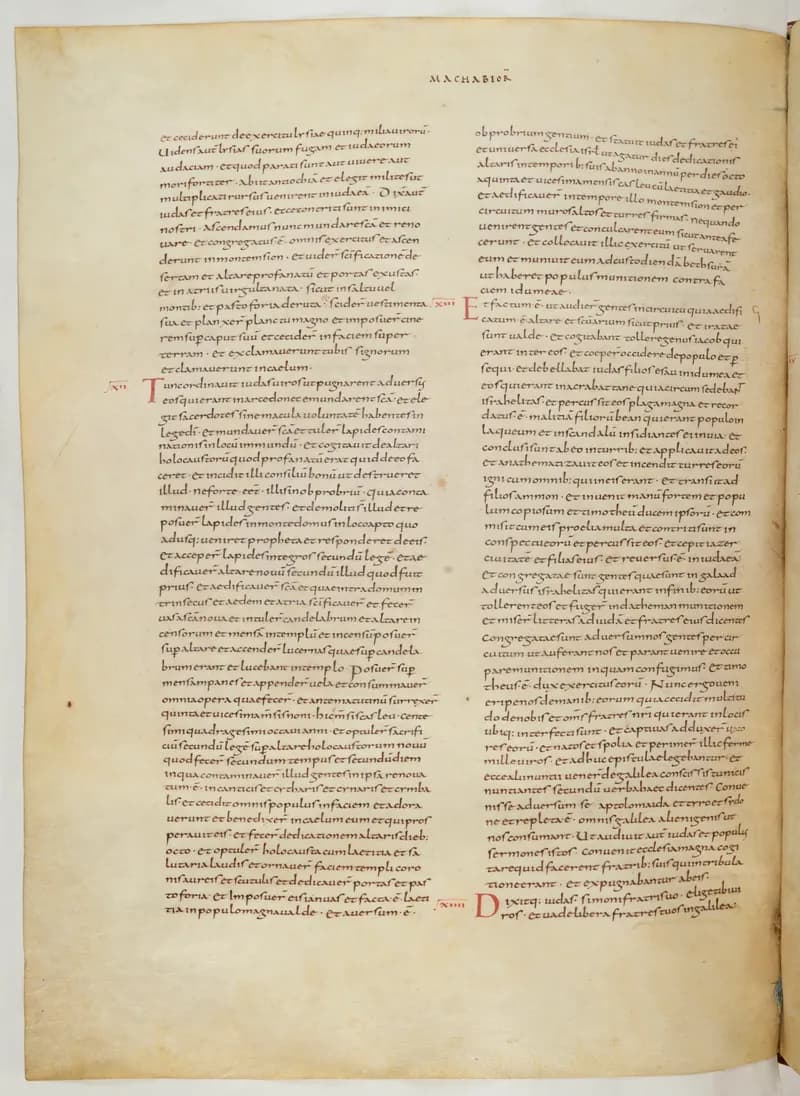 MACHABIOR̄
et ceciderunt de exercitu lysiae quinq; milia uirorū·
Uidens aut̄ lysias suorum fugam et iudaeorum
audaciam· et quod parati sunt aut uiuere aut
mori fortiter· abiit antiochiā et elegit milites ut
multiplicati rursus uenirent in iudaeā· Dixit aut̄
iudas et fratres eius· ecce contriti sunt inimici
nostri· Ascendamus nunc mundare sc̄ā et reno
uare· et congregatus ē· omnis exercitus et ascen
derunt in montem sion· et uider̄ sc̄ificationē de
sertam et altare profanatū et portas exustas
et in atriis uirgulta nata· sicut in saltu uel
montib: et pastoforia deruta· scider̄ uestimenta
sua et planxer̄ planctu magno et imposuer̄ cine
rem sup̄ caput suū et cecider̄ in faciem super
terram· et exclamauerunt tubis signorum
et clamauerunt in caelum·
XII
Tunc ordinauit iudas uiros ut pugnarent aduersus
eos qui erant in arce donec emundarent sc̄ā· et ele
git sacerdotes sine macula uoluntatē habentes in
lege dī· et mundauer̄ sc̄ā et tuler̄ lapides contami
nationis in locū immundū· et cogitauit de altari
holocaustorū quod profanatū erat quid de eo fa
ceret· et incidit illi consiliū bonū ut destrueret
illud· ne forte eēt· illis in obprobriū· quia conta
minauer̄ illud gentes· et demoliti s̄ illud et re
posuer̄ lapides in monte domus in loco apto quo
adusq; ueniret propheta et responderet de eis·
et acceper̄ lapides integros secundū legē· et ae
dificauer̄ altare nouū secundū illud quod fuit
prius· et aedificauer̄ sc̄ā et quae intra domum in
trinsecus et aedem et atria sc̄ificauer̄ et fecer̄
uasa sc̄ā noua et intuler̄ candelabrum et altare in
censorum et mensā in templū et incensū posuer̄
sup̄ altare et accender̄ lucernas quae sup̄ candela
brum erant et lucebant in templo· Posuer̄ sup̄
mensam panes et appender̄ uela et consummauer̄
omnia opera quae fecer̄· et ante matutinū surrexer̄
quinta et uicesima mensis noni· hic mensis casleu· cente
simi quadragesimi octaui anni· et optuler̄ sacrifi
ciū secundū legē sup̄ altare holocaustorum nouū
quod fecer̄ secundum tempus et secundū diem
in qua contaminauer̄ illud gentes in ipsa renoua
tum ē· in canticis et cytharis et cynaris et cymba
lis et cecidit omnis populus in faciem et adora
uerunt et benedixer̄ in caelum eum et qui pros
perauit eis· et fecer̄ dedicationem altaris dieb:
octo· et optuler̄ holocausta cum laetitia et sa
lutaria laudis et ornauer̄ faciem templi coro
nis aureis et scutulis et dedicauer̄ portas et pas
toforia· et Imposuer̄ eis ianuas et facta ē· laeti
tia in populo magna ualde· et auersum ē·
obprobrium gentium· et statuit iudas et fratres ei
et uniuersa ecclesia isrl ut agatur dies dedicationis
altaris in temporib: suis ab anno in annū per dies octo
a quinta et uicesima mensis casleu cū laetitia et gaudio·
et aedificauer̄ in tempore illo montem sion et per
circuitum muros altos et turres firmas· nequando
uenirent gentes et conculcarent eum sicut antea fe
cerunt· et collocauit illic exercitū ut seruarent
eum et muniuit eum ad custodiendā bethsurā
ut haberet populus munitionem contra fa
ciem idumeae·
XIII
Et factum ē· ut audier̄ gentes in circuitu quia aedifi
catum ē· altare et sc̄uarium sicut prius· et iratae
sunt ualde· et cogitabant tollere genus iacob qui
erant inter eos· et coeper̄ occidere de populo et p̄
sequi· et debellabat iudas filios esau in idumea et
eos qui erant in acrabattane quia circumsedebant
israhelitas et percussit eos plaga magna et recor
datus ē· malitiā filiorū bean qui erant populo in
laqueum et in scandalū insidiantes ei in uia· et
conclusi sunt ab eo in turrib: et applicauit ad eos·
et anathematizauit eos et incendit turres eorū
igni cum omnib: qui in eis erant· et transiit ad
filios ammon· et inuenit manū fortem et popu
lum copiosum et timotheū ducem ipsorū· et com
misit cum eis proelia multa et contriti sunt in
conspectu eorū et percussit eos· et cepit iazer
ciuitatē et filias eius· et reuersus ē· in iudaeā
et congregatae sunt gentes quae sunt in galaad
aduersus israhelitas qui erant in finib: eorū ut
tollerent eos et fuger̄ in datheman munitionem
et miser̄ litteras ad iudā et fratres eius dicentes
Congregatae sunt aduersum nos gentes per cir
cuitum ut auferant nos et parant uenire et occu
pare munitionem in quam confugimus· et timo
theus ē· dux exercitus eorū· Nunc ergo ueni
eripe nos de manib: eorum quia cecidit multitu
do de nobis et om̄s fratres nr̄i qui erant in locis
ubiq; interfecti sunt· et captiuas adduxer̄ uxo
res eorū· et natos et spolia et peremer̄ illic ferme
mille uiros· et adhuc epistulae legebantur· et
ecce alii nuntii uener̄ de galilea conscissis tunicis
nuntiantes secundū uerba haec dicentes· Conue
nisse aduersum se· a ptolomaida et tyro et sydo
ne et repleta ē· omnis galilea alienigenis ut
nos consumant· Ut audiuit aut̄ iudas et populus
sermones istos· conuenit ecclesia magna cogi
tare quid facerent fratrib: suis qui in tribula
tione erant· et expugnabantur ab eis·
XIIII
Dixitq; iudas· simoni fratri suo· elige tibi ui
ros· et uade libera fratres tuos in galilea·